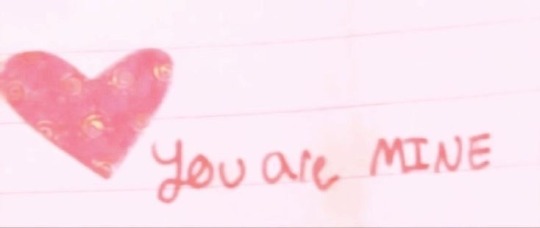 You are MINE